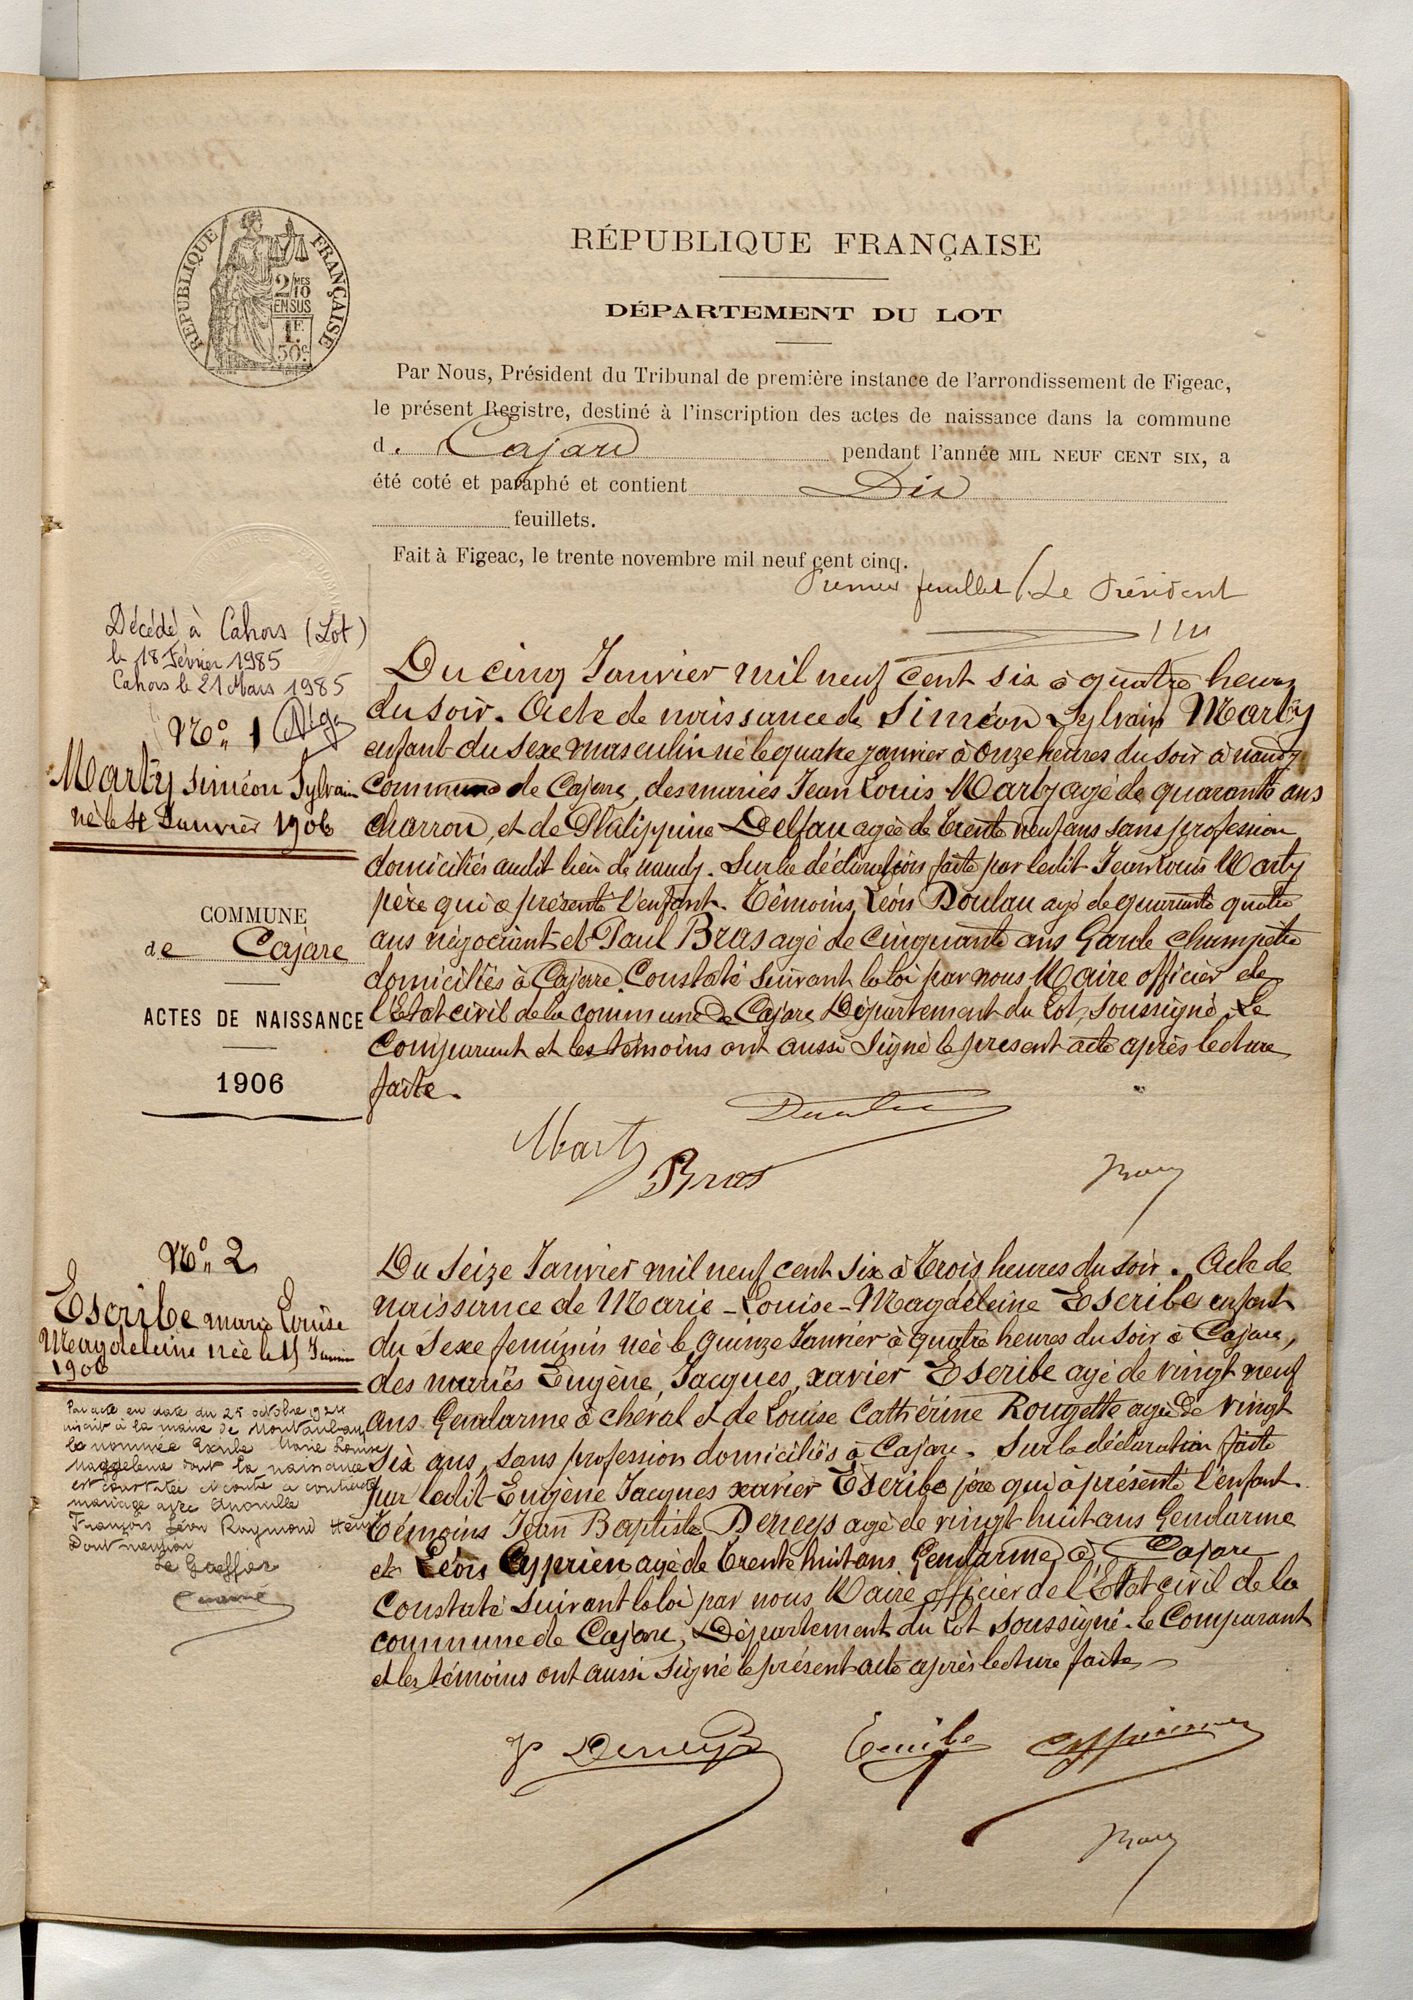 RÉPUBLIQUE FRANÇAISE
2/10 MES
EN SUS
1F
50c
RÉPUBLIQUE FRANÇAISE
DÉPARTEMENT DU LOT
Par Nous, Président du Tribunal de première instance de l'arrondissement de Figeac,
le présent Registre, destiné à l'inscription des actes de naissance dans la commune
d. Cajarc pendant l'année MIL NEUF CENT SIX, a
été coté et paraphé et contient Dix
feuillets.
Fait à Figeac, le trente novembre mil neuf cent cinq.
Premier feuillet / Le Président
Décédé à Cahors (Lot)
le 18 Février 1985
Cahors le 21 Mars 1985
No 1
Marty Siméon Sylvain
né le 4 Janvier 1906
COMMUNE
de Cajarc
ACTES DE NAISSANCE
1906
Du cinq Janvier mil neuf cent six à quatre heures
du soir. Acte de naissance de Siméon Sylvain Marty
enfant du sexe masculin né le quatre janvier à onze heures du soir à
commune de Cajarc, des mariés Jean Louis Marty agé de quarante ans
charron, et de Philippine Delfau agée de trente neuf ans sans profession
domiciliés audit lieu de . Sur la déclaration faite par ledit Jean Louis Marty
père qui a présenté l'enfant. Témoins Léon Doulau agé de quarante quatre
ans négociant et Paul Bras agé de cinquante ans Garde champêtre
domiciliés à Cajarc. Constaté suivant la loi par nous Maire officier de
l'Etat civil de la commune de Cajarc Département du Lot, soussigné. Le
Comparant et les témoins ont aussi signé le présent acte après lecture
faite.
Marty
Bras
No 2
Escribe marie Louise
Magdeleine née le 15 Janvier
1906
Par acte en date du 25 octobre 1924
inscrit à la mairie de Montauban
la nommée Escribe Marie Louise
Magdeleine dont la naissance
est constatée ci contre a contracté
mariage avec
François Léon Raymond Henri
Dont mention
Le Greffier
Du seize Janvier mil neuf cent six à trois heures du soir. Acte de
naissance de Marie-Louise-Magdeleine Escribe enfant
du sexe feminin née le quinze Janvier à quatre heures du soir à Cajarc,
des mariés Eugène, Jacques, xavier Escribe agé de vingt neuf
ans Gendarme à cheval et de Louise Cathérine Rougette agée de vingt
six ans, sans profession domiciliés à Cajarc. Sur la déclaration faite
par ledit Eugène Jacques xavier Escribe père qui a présenté l'enfant.
Témoins Jean Baptiste Derreys agé de vingt huit ans Gendarme
et Léon Cyprien agé de trente huit ans Gendarme à Cajarc
Constaté suivant la loi par nous Maire officier de l'Etat civil de la
commune de Cajarc, Département du Lot soussigné. le Comparant
et les témoins ont aussi signé le présent acte après lecture faite
Escribe